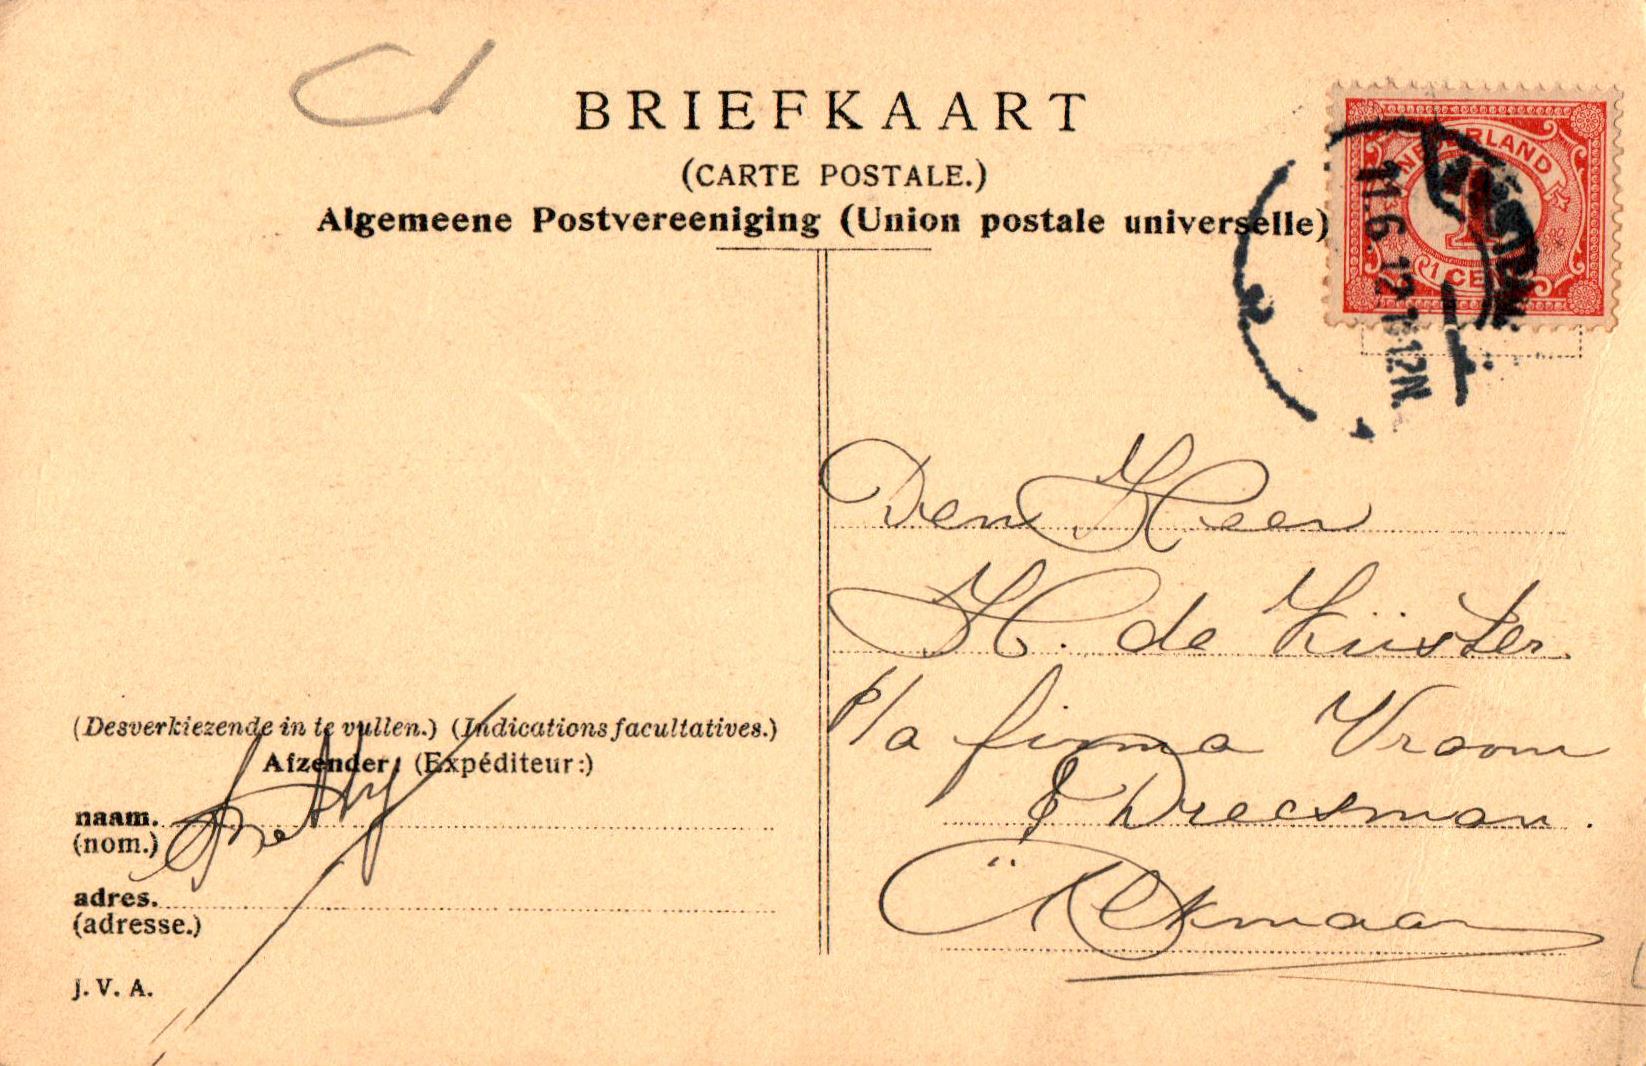 BRIEFKAART
(CARTE POSTALE.)
Algemeene Postvereeniging (Union postale universelle)
NEDERLAND
1
1 CENT
11.6.12 11-12N.
Den Heer
H. de Küster
p/a firma Vroom
& Dreesman.
Alkmaar
(Desverkiezende in te vullen.) (Indications facultatives.)
Afzender: (Expéditeur:)
naam.
(nom.)
Betty
adres.
(adresse.)
J. V. A.